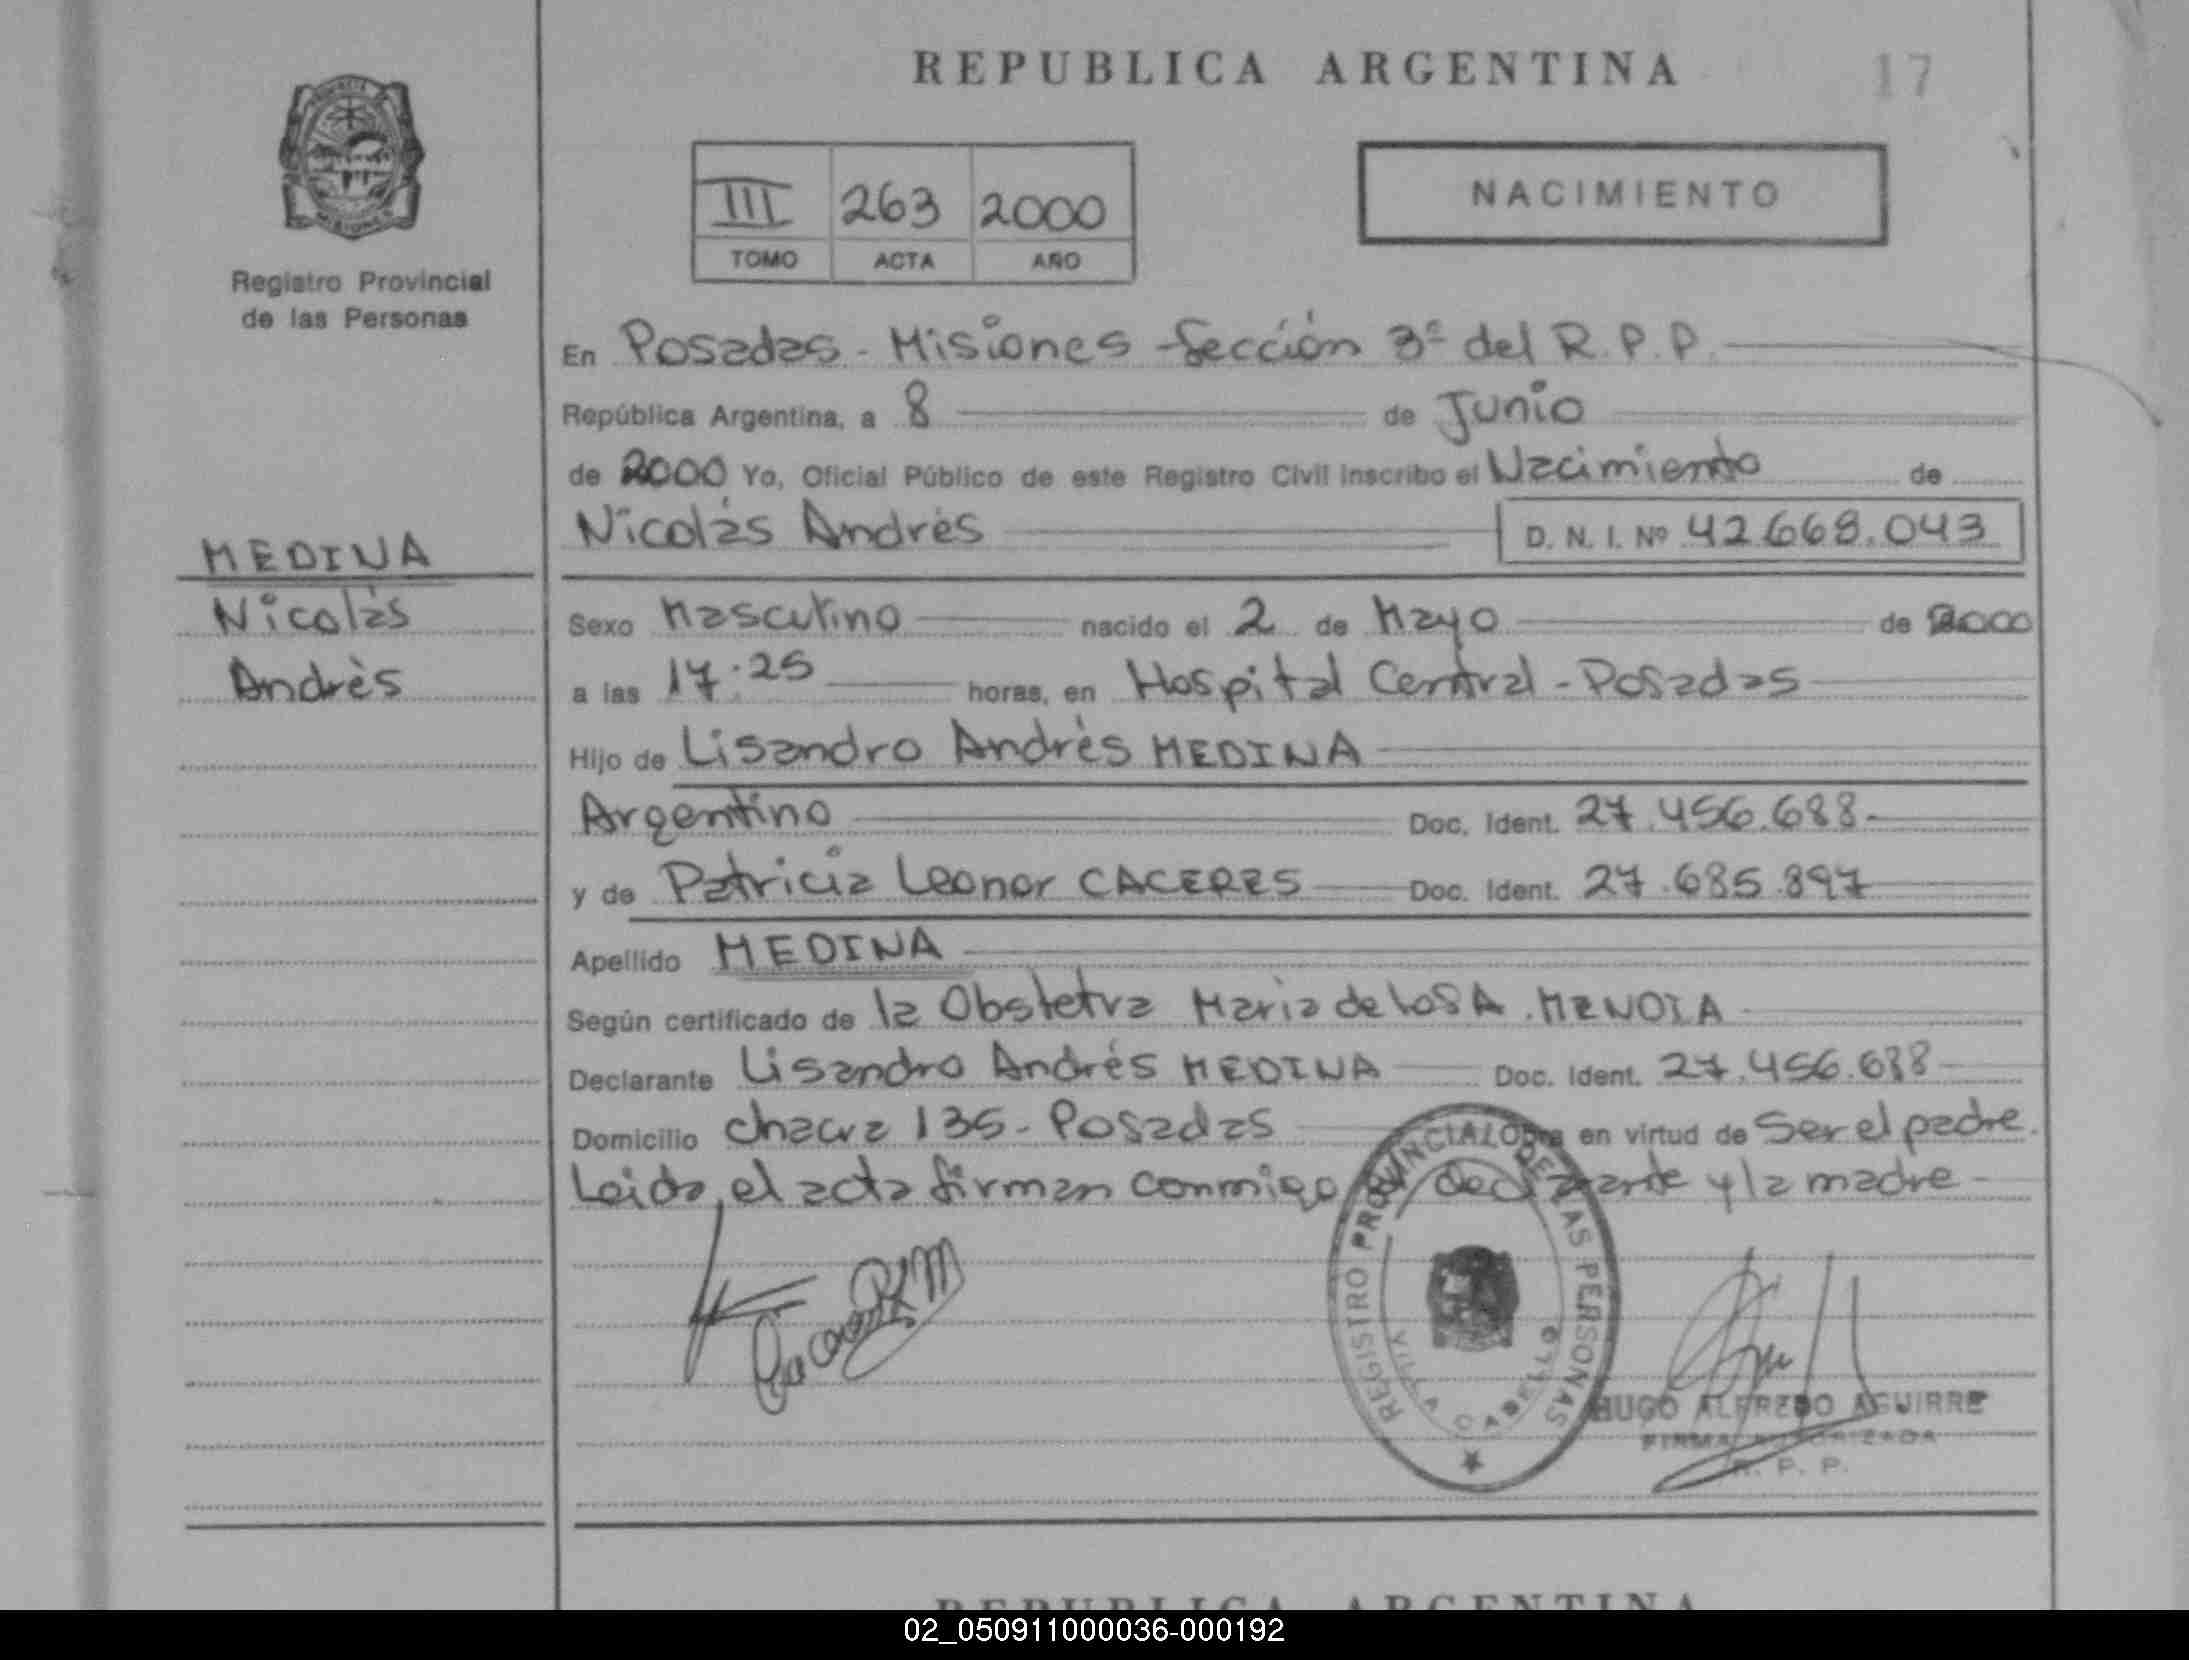 REPUBLICA ARGENTINA
17
Registro Provincial
de las Personas
III 263 2000
TOMO ACTA AÑO
NACIMIENTO
En Posadas - Misiones - Sección 3ª del R.P.P.
República Argentina, a 8 de Junio
de 2000 Yo, Oficial Público de este Registro Civil inscribo el Nacimiento de
Nicolás Andrés D. N. I. Nº 42.668.043
MEDINA
Nicolás
Andrés
Sexo Masculino nacido el 2 de Mayo de 2000
a las 17.25 horas, en Hospital Central - Posadas
Hijo de Lisandro Andrés MEDINA
Argentino Doc. Ident. 27.456.688.-
y de Patricia Leonor CACERES Doc. Ident. 27.685.897
Apellido MEDINA
Según certificado de la Obstetra Maria de los A.
Declarante Lisandro Andrés MEDINA Doc. Ident. 27.456.688
Domicilio chacra 135 - Posadas en virtud de Ser el padre.
Leida el acta firman conmigo declarante y la madre -
REGISTRO PROVINCIAL DE LAS PERSONAS
VILLA CABELLO
HUGO ALFREDO AGUIRRE
FIRMA AUTORIZADA
R. P. P.
REPUBLICA ARGENTINA
02_050911000036-000192